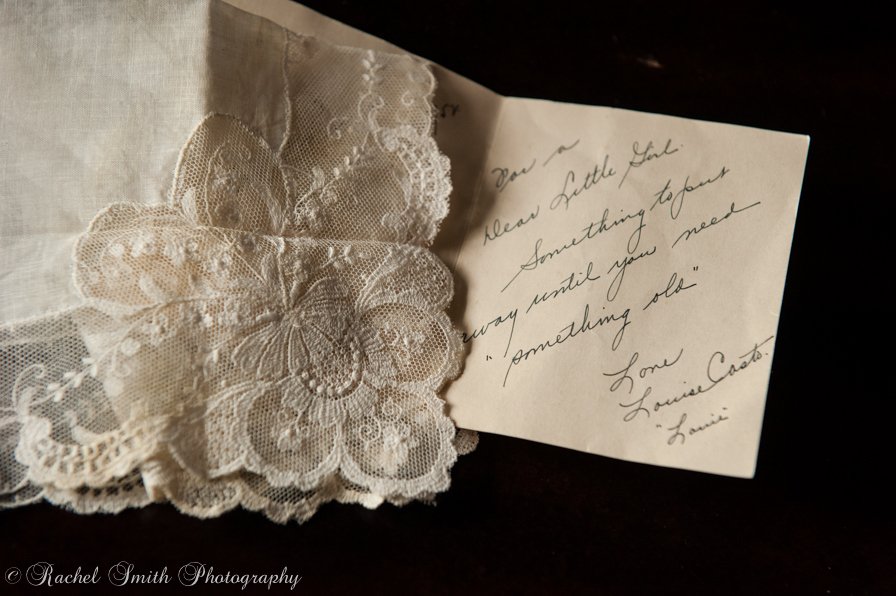 For a
Dear Little Girl.
Something to put
away until you need
"something old"
Love
Louise Casto.
"Louie"
© Rachel Smith Photography